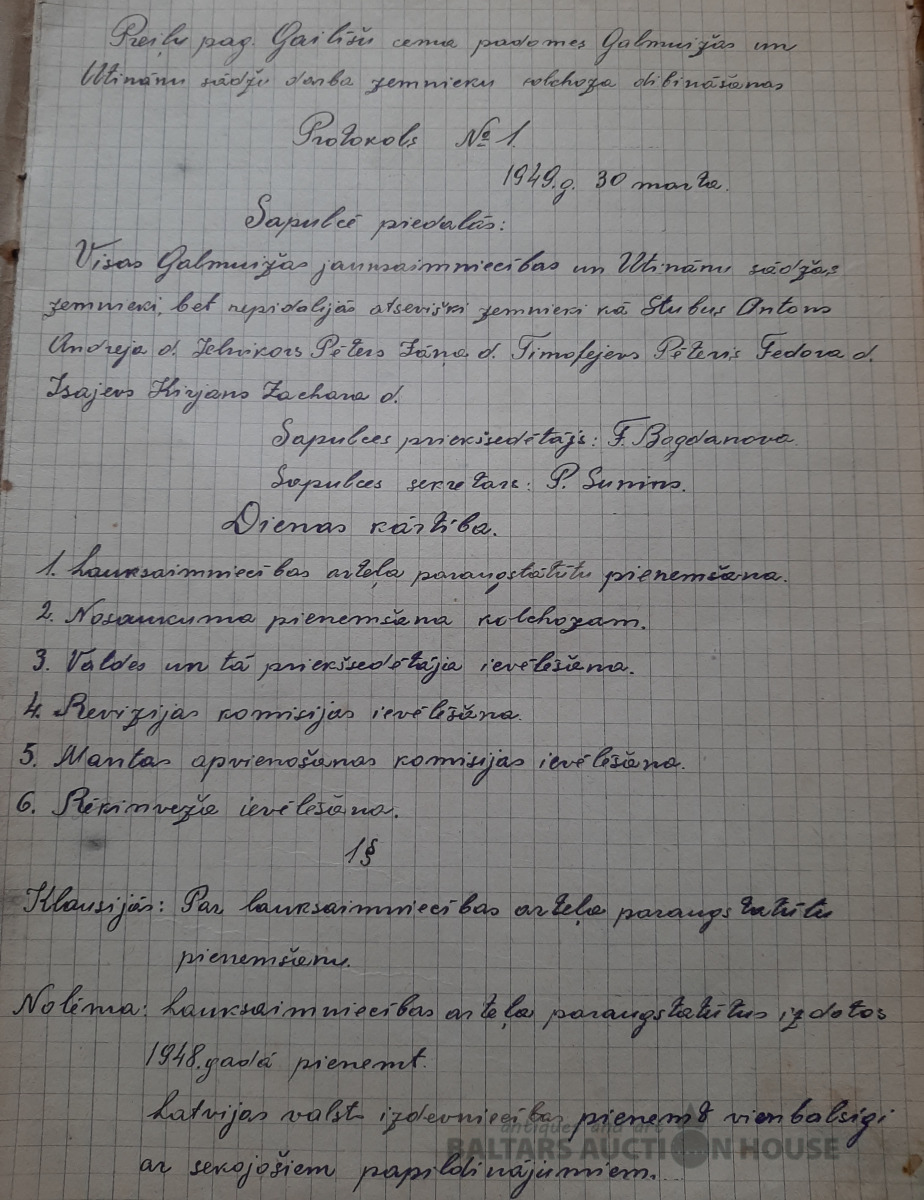 Preiļu pag. Gailīšu cema padomes Galmuižas un
Utinānu sādžu darba zemnieku kolchoza dibināšanas
Protokols № 1.
1949.g. 30 marta.
Sapulcē piedalās:
Visas Galmuižas jaunsaimniecības un Utinānu sādžas
zemnieki, bet nepidalijās atseviški zemnieki kā Stubus Antons
Andreja d. Pēters Jāņa d. Timofejevs Pēteris Fedora d.
Isajevs Kirjans Zachara d.
Sapulces priekšsedētājs: F. Bogdanova
Sapulces sekretars: P. Sunins.
Dienas kārtība.
1. Lauksaimniecības arteļa paraugstātūtu pienemšana.
2. Nosaukuma pienemšana kolchozam.
3. Valdes un tā priekšsedētāja ievēlēšana.
4. Revizijas komisijas ievēlēšana.
5. Mantas apvienošanas komisijas ievēlēšana.
6. Rēkinveža ievēlēšana.
1§
Klausijās: Par lauksaimniecības arteļa paraugstatūtu
pienemšanu.
Nolēma: Lauksaimniecības arteļa paraugstatūtus izdotos
1948.gadā pienemt.
Latvijas valsts izdevniecības pienemt vienbalsigi
ar sekojošiem papildinājumiem.
antiques and art
BALTARS AUCTION HOUSE